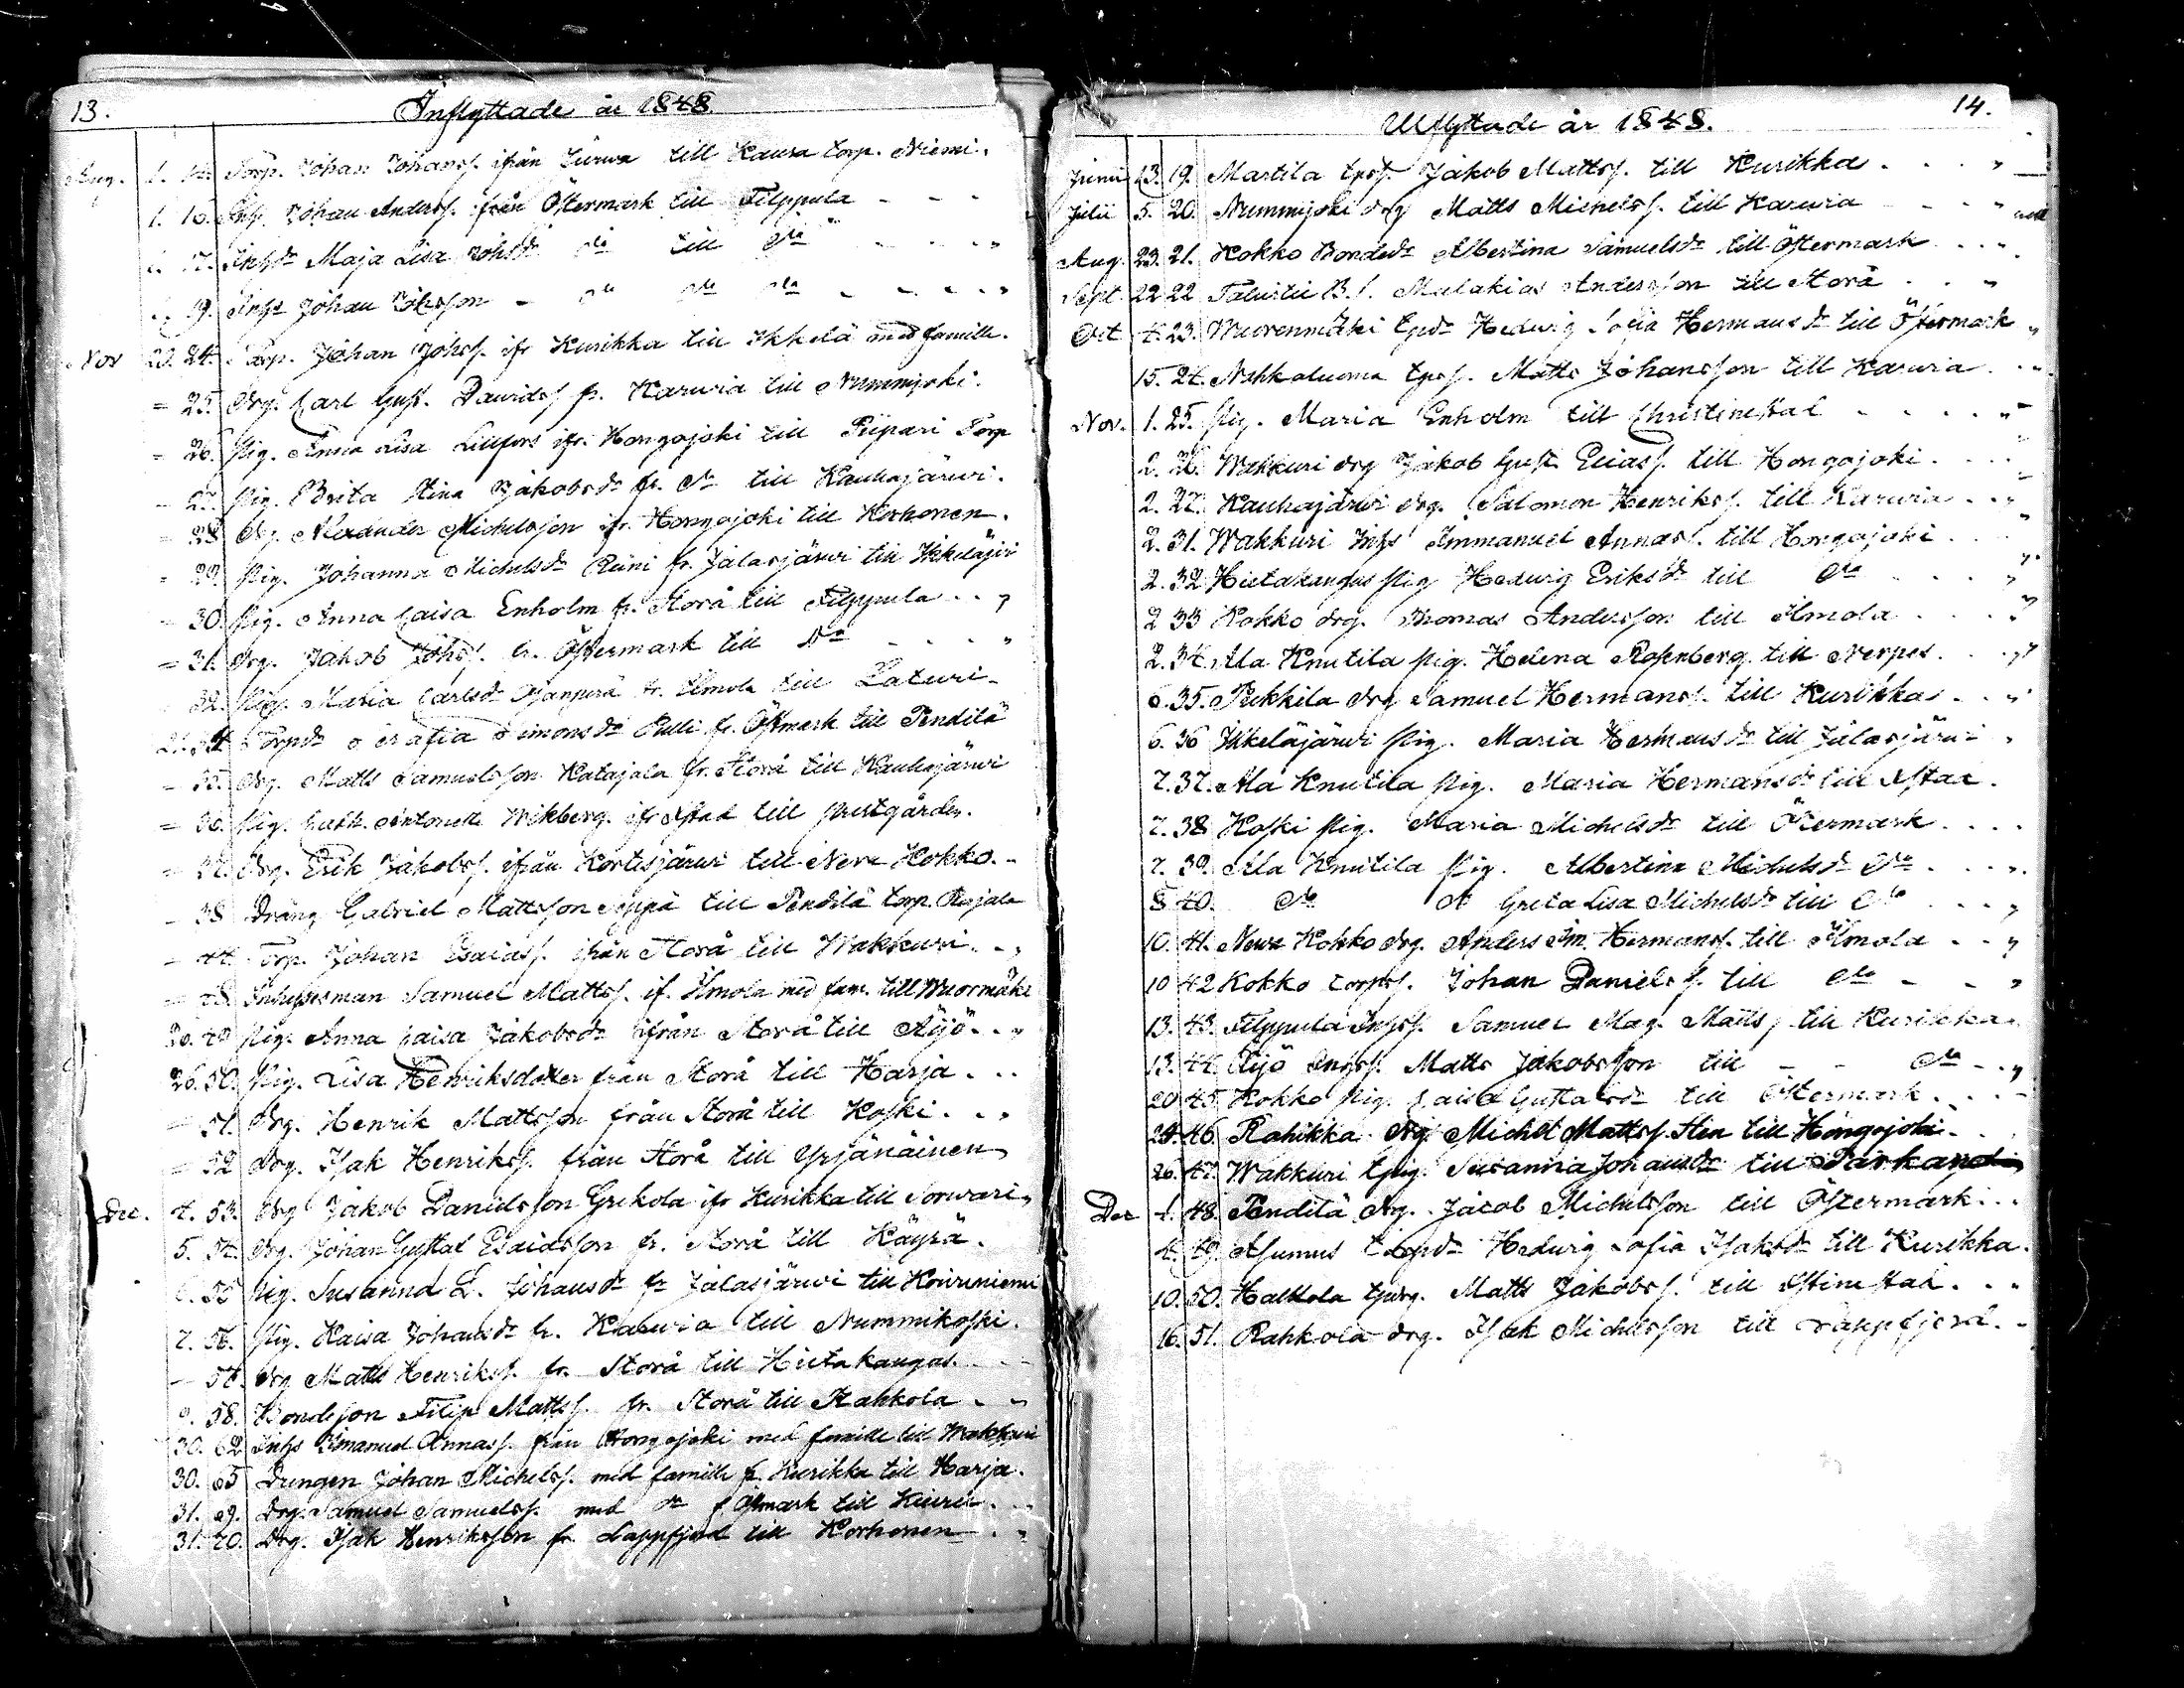 13.
Inflyttade år 1848.
Aug. 1. 14. Torp. Johan Johanss. ifrån Jurwa till Kausa torp. Niemi.
1. 16. Inhs. Johan Anderss. från Östermark till Filppula - - -
17. Inhsdr Maja Lisa Johsdr do till do - - - "
19. Inhs Johan Johsson - do do do - - - - "
Nov 20. 24. Torp. Johan Johss. ifr Kurikka till Ikkelä med famille.
= 25. Drg. Carl Gust. Davidss fr. Karwia till Nummijoki.
= 26. Pig. Anna Lisa Lillfors ifr. Hongojoki till Piipari Torp
- 27. Pig. Brita Stina Jakobsdr fr. do till Kauhajärwi.
= 28 Drg. Alexander Michelsson ifr. Hongojoki till Korhonen.
= 29. Pig. Johanna Michelsdr Reini fr. Jalasjärwi till Ikkeläjär
= 30. Pig. Anna Caisa Enholm fr. Storå till Filppula . . "
= 31. Drg. Jakob Johss. fr. Östermark till do - - - "
32. Pig. Maria Carlsdr fr. Ilmola till Laturi -
21. 34 Torpdr Serafia Simonsdr Pulli fr. Östmark till Pendilä
- 35. Drg. Matts Samuelsson Katajala fr. Storå till Kauhajärwi
= 36. Pig. Cath. Antonett Wikberg. ifr Xstad till Prestgården.
= 37. Drg. Erik Jakobss. ifrån Kortisjärwi till Neva Kokko. -
- 38 Dräng Gabriel Mattsson Seppä till Pendilä torp. Rajala
- 44. Torp. Johan Esaiass. ifrån Storå till Wakkuri . . "
= 48. Inhysesman Samuel Mattss. if. Ilmola med fam. till Wuormäki
20. 49 Pig. Anna Caisa Jakobsdr ifrån Storå till Äijö . . "
26. 50. Pig. Lisa Henriksdotter från Storå till Harja . . .
= 51. Drg. Henrik Mattsson från Storå till Koski . . "
= 52 Drg. Isak Henrikss. från Storå till Yrjänäinen
Dec. 4. 53. Drg Jakob Danielsson Grekola ifr Kurikka till Sorwari "
5. 54. Drg. Johan Gustaf Esaiasson fr. Storå till Käyrä.
6. 55 Pig. Susanna L. Johansdr fr Jalasjärwi till Koiwuniemi
7. 56. Pig. Kaisa Johansdr fr. Karwia till Nummikoski.
- 57. Drg Matts Henrikss. fr. Storå till Hietakangas. - -
9. 58. Bondeson Filip Mattss. fr. Storå till Rahkola - "
30. 62 Inhs Imanuel Annass. från Hongojoki med famille till Wakkuri
30. 65 Drengen Johan Michelss. med famille fr. Kurikka till Harja.
31. 69. Drg. Samuel Samuelss. med do f. Östmark till Kiuru . . .
31. 70. Drg. Isak Henriksson fr. Lappfjerd till Korhonen . "
14.
Utflyttade år 1848.
Junii 13. 19. Martila tpss. Jakob Mattss. till Kurikka . . . "
Julii 5. 20. Nummijoki drg Matts Michelss. till Karwia - - "
Aug. 23. 21. Kokko Bondedr Albertina Samuelsdr till Östermark . . "
Sept 22 22 B.S. Malakias Andersson till Storå . . "
Oct 4. 23. Wuorenmäki tpdr Hedwig Sofia Hermansdr till Östermark "
15. 24. Nahkaluoma tpss. Matts Johansson till Karwia . . "
Nov. 1. 25. Pig. Maria Enholm till Christinestad - - - "
2. 26. Wakkuri drg Jakob Gust. Eliass. till Hongojoki . . .
2. 27. Kauhajärwi drg. Salomon Henrikss. till Karwia . . "
2. 31. Wakkuri Inhs Immanuel Annass. till Hongojoki . . .
2. 32 Hietakangas Pig Hedwig Eriksdr till do . . . "
2 33 Kokko drg. Thomas Andersson till Ilmola . . . "
2. 34. Ala Knutila Pig. Helena Rosenberg till Nerpes . . . "
6. 35. Pukkila drg Samuel Hermanss. till Kurikka . . "
6. 36 Ikkeläjärwi Pig. Maria Hermansdr till Jalasjärwi "
7. 37. Ala Knutila Pig. Maria Hermansdr till Xstad .
7. 38 Koski Pig. Maria Michelsdr till Östermark . . . .
7. 39. Ala Knutila Pig. Albertina Michelsdr do . . . . "
8 40. do do Greta Lisa Michelsdr till do . . . "
10. 41. Neva Kokko drg. Anders Im. Hermanss. till Ilmola . . "
10 42 Kokko torpss. Johan Danielss. till do - - "
13. 43. Filppula Inhss. Samuel Mag. Mattss. till Kurikka .
13. 44. Äijö Inhss. Matts Jakobsson till - - do - . "
20 45 Kokko Pig. Caisa Gustafsdr till Östermark . . . -
24. 46. Rahikka drg Michel Mattss. Sten till Hongojoki .
26. 47. Wakkuri tpig. Susanna Johansdr till Parkano
Dec 1. 48. Pendilä drg. Jacob Michelsson till Östermark . . .
4. 49. Asumus torpdr Hedwig Sofia Isaksdr till Kurikka .
10. 50. Halkola tpdrg. Matts Jakobss. till Xstinestad . . "
16. 51. Rahkola drg. Isak Michelsson till Lappfjerd . -